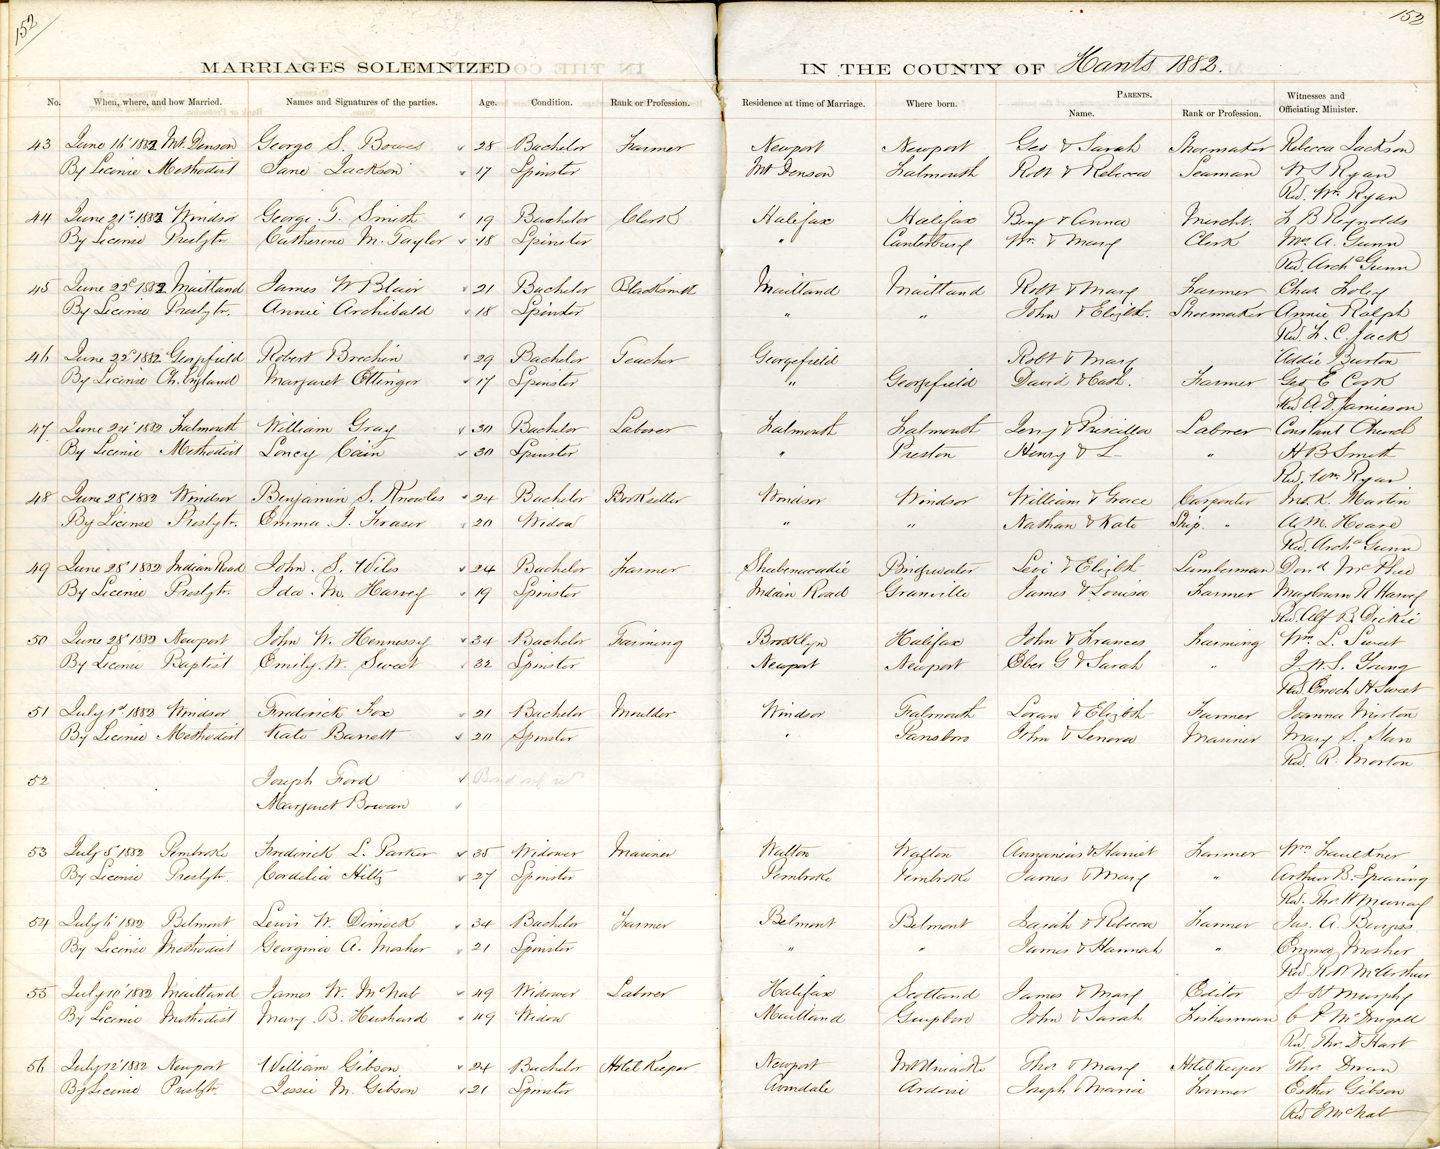 152
153
MARRIAGES SOLEMNIZED IN THE COUNTY OF Hants 1882.
No. When, where, and how Married. Names and Signatures of the parties. Age. Condition. Rank or Profession. Residence at time of Marriage. Where born. PARENTS. Name. Rank or Profession. Witnesses and Officiating Minister.
43 June 16' 1882 Mt. Denson George S. Bowes 28 Bachelor Farmer Newport Newport Geo & Sarah Shoemaker Rebecca Jackson
By License Methodist Jane Jackson 17 Spinster Mt Denson Falmouth Robt & Rebecca Seaman W S Ryan
Rev. Wm Ryan
44 June 21st 1882 Windsor George T. Smith 19 Bachelor Clerk Halifax Halifax Benj & Anna Mercht. L B Reynolds
By License Presbytr. Catherine M. Taylor 18 Spinster " Canterbury Wm. & Mary Clerk Mrs A. Gunn
Rev. Archd Gunn
45 June 22d 1882 Maitland James W Blair 21 Bachelor Blacksmith Maitland Maitland Robt & Mary Farmer Chas Foley
By License Presbytr. Annie Archibald 18 Spinster " " John & Elizbth. Shoemaker Annie Ralph
Rev. L. C. Jack
46 June 22d 1882 Georgefield Robert Brechin 29 Bachelor Teacher Georgefield Robt & Mary Addie Burton
By License Ch. England Margaret Ettinger 17 Spinster " Georgefield David & Cath. Farmer Geo E Cork
Rev A. D. Jamieson
47 June 24' 1882 Falmouth William Gray 30 Bachelor Laborer Falmouth Falmouth Jerry & Priscilla Laborer Constant Church
By License Methodist Loncy Cain 30 Spinster " Preston Henry & L— " H B Smith
Rev. Wm. Ryan
48 June 28' 1882 Windsor Benjamin S. Knowles 24 Bachelor Bookseller Windsor Windsor William & Grace Carpenter Mrs K. Martin
By License Presbytr. Emma J. Fraser 20 Widow " " Nathan & Kate Ship " A. M. Hoare
Rev. Archd Gunn
49 June 28' 1882 Indian Road John. S. Wiles 24 Bachelor Farmer Shubenacadie Bridgwater Levi & Elizbth Lumberman Dond McPhee
By License Presbytr. Ida. M. Harvey 19 Spinster Indian Road Granville James & Louisa Farmer R Harvey
Rev. Alf B. Dickie
50 June 28' 1882 Newport John W. Hennessy 34 Bachelor Farming Brooklyn Halifax John & Frances Farming Wm L. Sweet
By License Baptist Emily. W. Sweet 32 Spinster Newport Newport Eber G & Sarah " J. W. S. Young
Rev. Enoch H Sweet
51 July 1st 1882 Windsor Frederick Fox 21 Bachelor Moulder Windsor Falmouth Loran & Elizbth Farmer Joanna Morton
By License Methodist Kate Barrett 20 Spinster " Parsboro John & Lenora Mariner Mary S.
Rev. R. Morton
52 Joseph Ford Bond
Margaret Bowan
53 July 5' 1882 Pembroke Frederick L. Parker 35 Widower Mariner Walton Walton Annanias & Harriet Farmer Wm Faulkner
By License Presbytr. Cordelia Hiltz 27 Spinster Pembroke Pembroke James & Mary " Arthur B. Spearing
Rev. Thos W Murray
54 July 6' 1882 Belmont Lewis W. Dimock 34 Bachelor Farmer Belmont Belmont Isaiah & Rebecca Farmer Jas. A. Burgess
By License Methodist Georgina A. Mosher 21 Spinster " " James & Hannah " Emma Mosher
Rev R McArthur
55 July 10' 1882 Maitland James W. McNab 49 Widower Laborer Halifax Scotland James & Mary Editor S W Murphy
By License Methodist Mary B. Hushard 49 Widow Maitland Guysboro John & Sarah Fisherman C P McDougall
Rev. Thos. D Hart
56 July 12' 1882 Newport William Gibson 24 Bachelor Hotel Keeper Newport Mt Uniacke Thos & Mary Hotel Keeper Thos
By License Presbytr. Jessie M. Gibson 21 Spinster Avondale Ardoise Joseph & Maria Farmer Esther Gibson
Rev E McNab